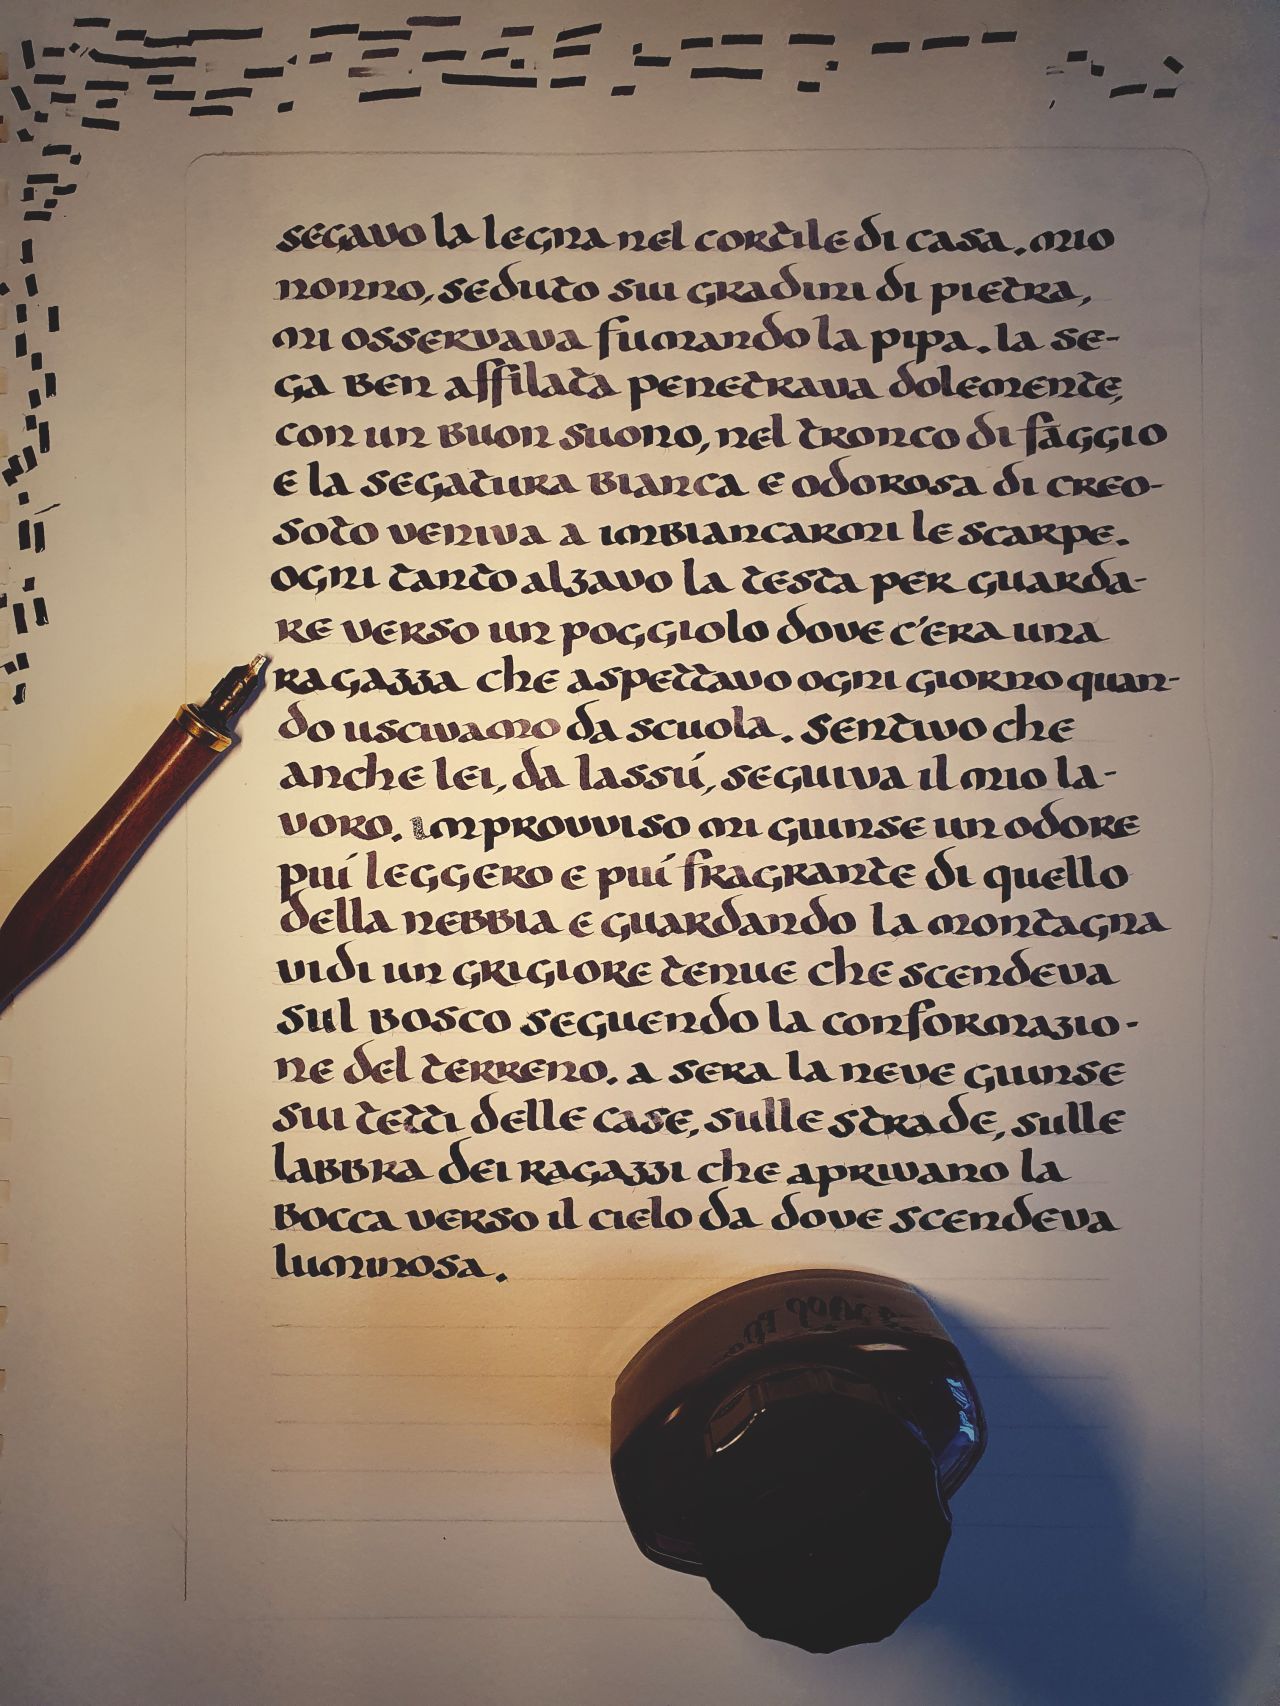 segavo la legna nel cortile di casa. mio
nonno, seduto sui gradini di pietra,
mi osservava fumando la pipa. la se-
ga ben affilata penetrava dolcemente,
con un buon suono, nel tronco di faggio
e la segatura bianca e odorosa di creo-
soto veniva a imbiancarmi le scarpe.
ogni tanto alzavo la testa per guarda-
re verso un poggiolo dove c'era una
ragazza che aspettavo ogni giorno quan-
do uscivamo da scuola. sentivo che
anche lei, da lassú, seguiva il mio la-
voro. improvviso mi giunse un odore
piú leggero e piú fragrante di quello
della nebbia e guardando la montagna
vidi un grigiore tenue che scendeva
sul bosco seguendo la conformazio-
ne del terreno. a sera la neve giunse
sui tetti delle case, sulle strade, sulle
labbra dei ragazzi che aprivano la
bocca verso il cielo da dove scendeva
luminosa.